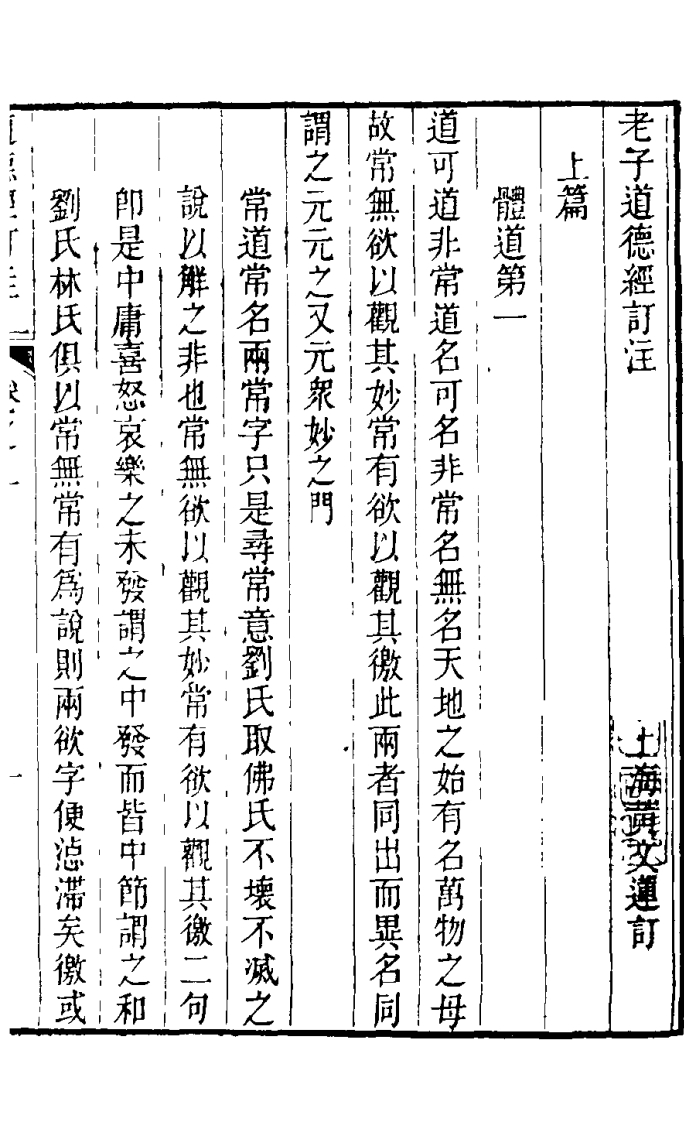 老子道德經訂注
上海黃文蓮訂
上篇
體道第一
道可道非常道名可名非常名無名天地之始有名萬物之母
故常無欲以觀其妙常有欲以觀其徼此兩者同出而異名同
謂之元元之又元衆妙之門
常道常名兩常字只是尋常意劉氏取佛氏不壞不滅之
說以解之非也常無欲以觀其妙常有欲以觀其徼二句
卽是中庸喜怒哀樂之未發謂之中發而皆中節謂之和
劉氏林氏俱以常無常有爲說則兩欲字便滯矣徼或
道德經訂注
卷之一
一